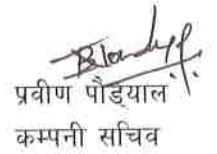 प्रवीण पौड्याल
कम्पनी सचिव